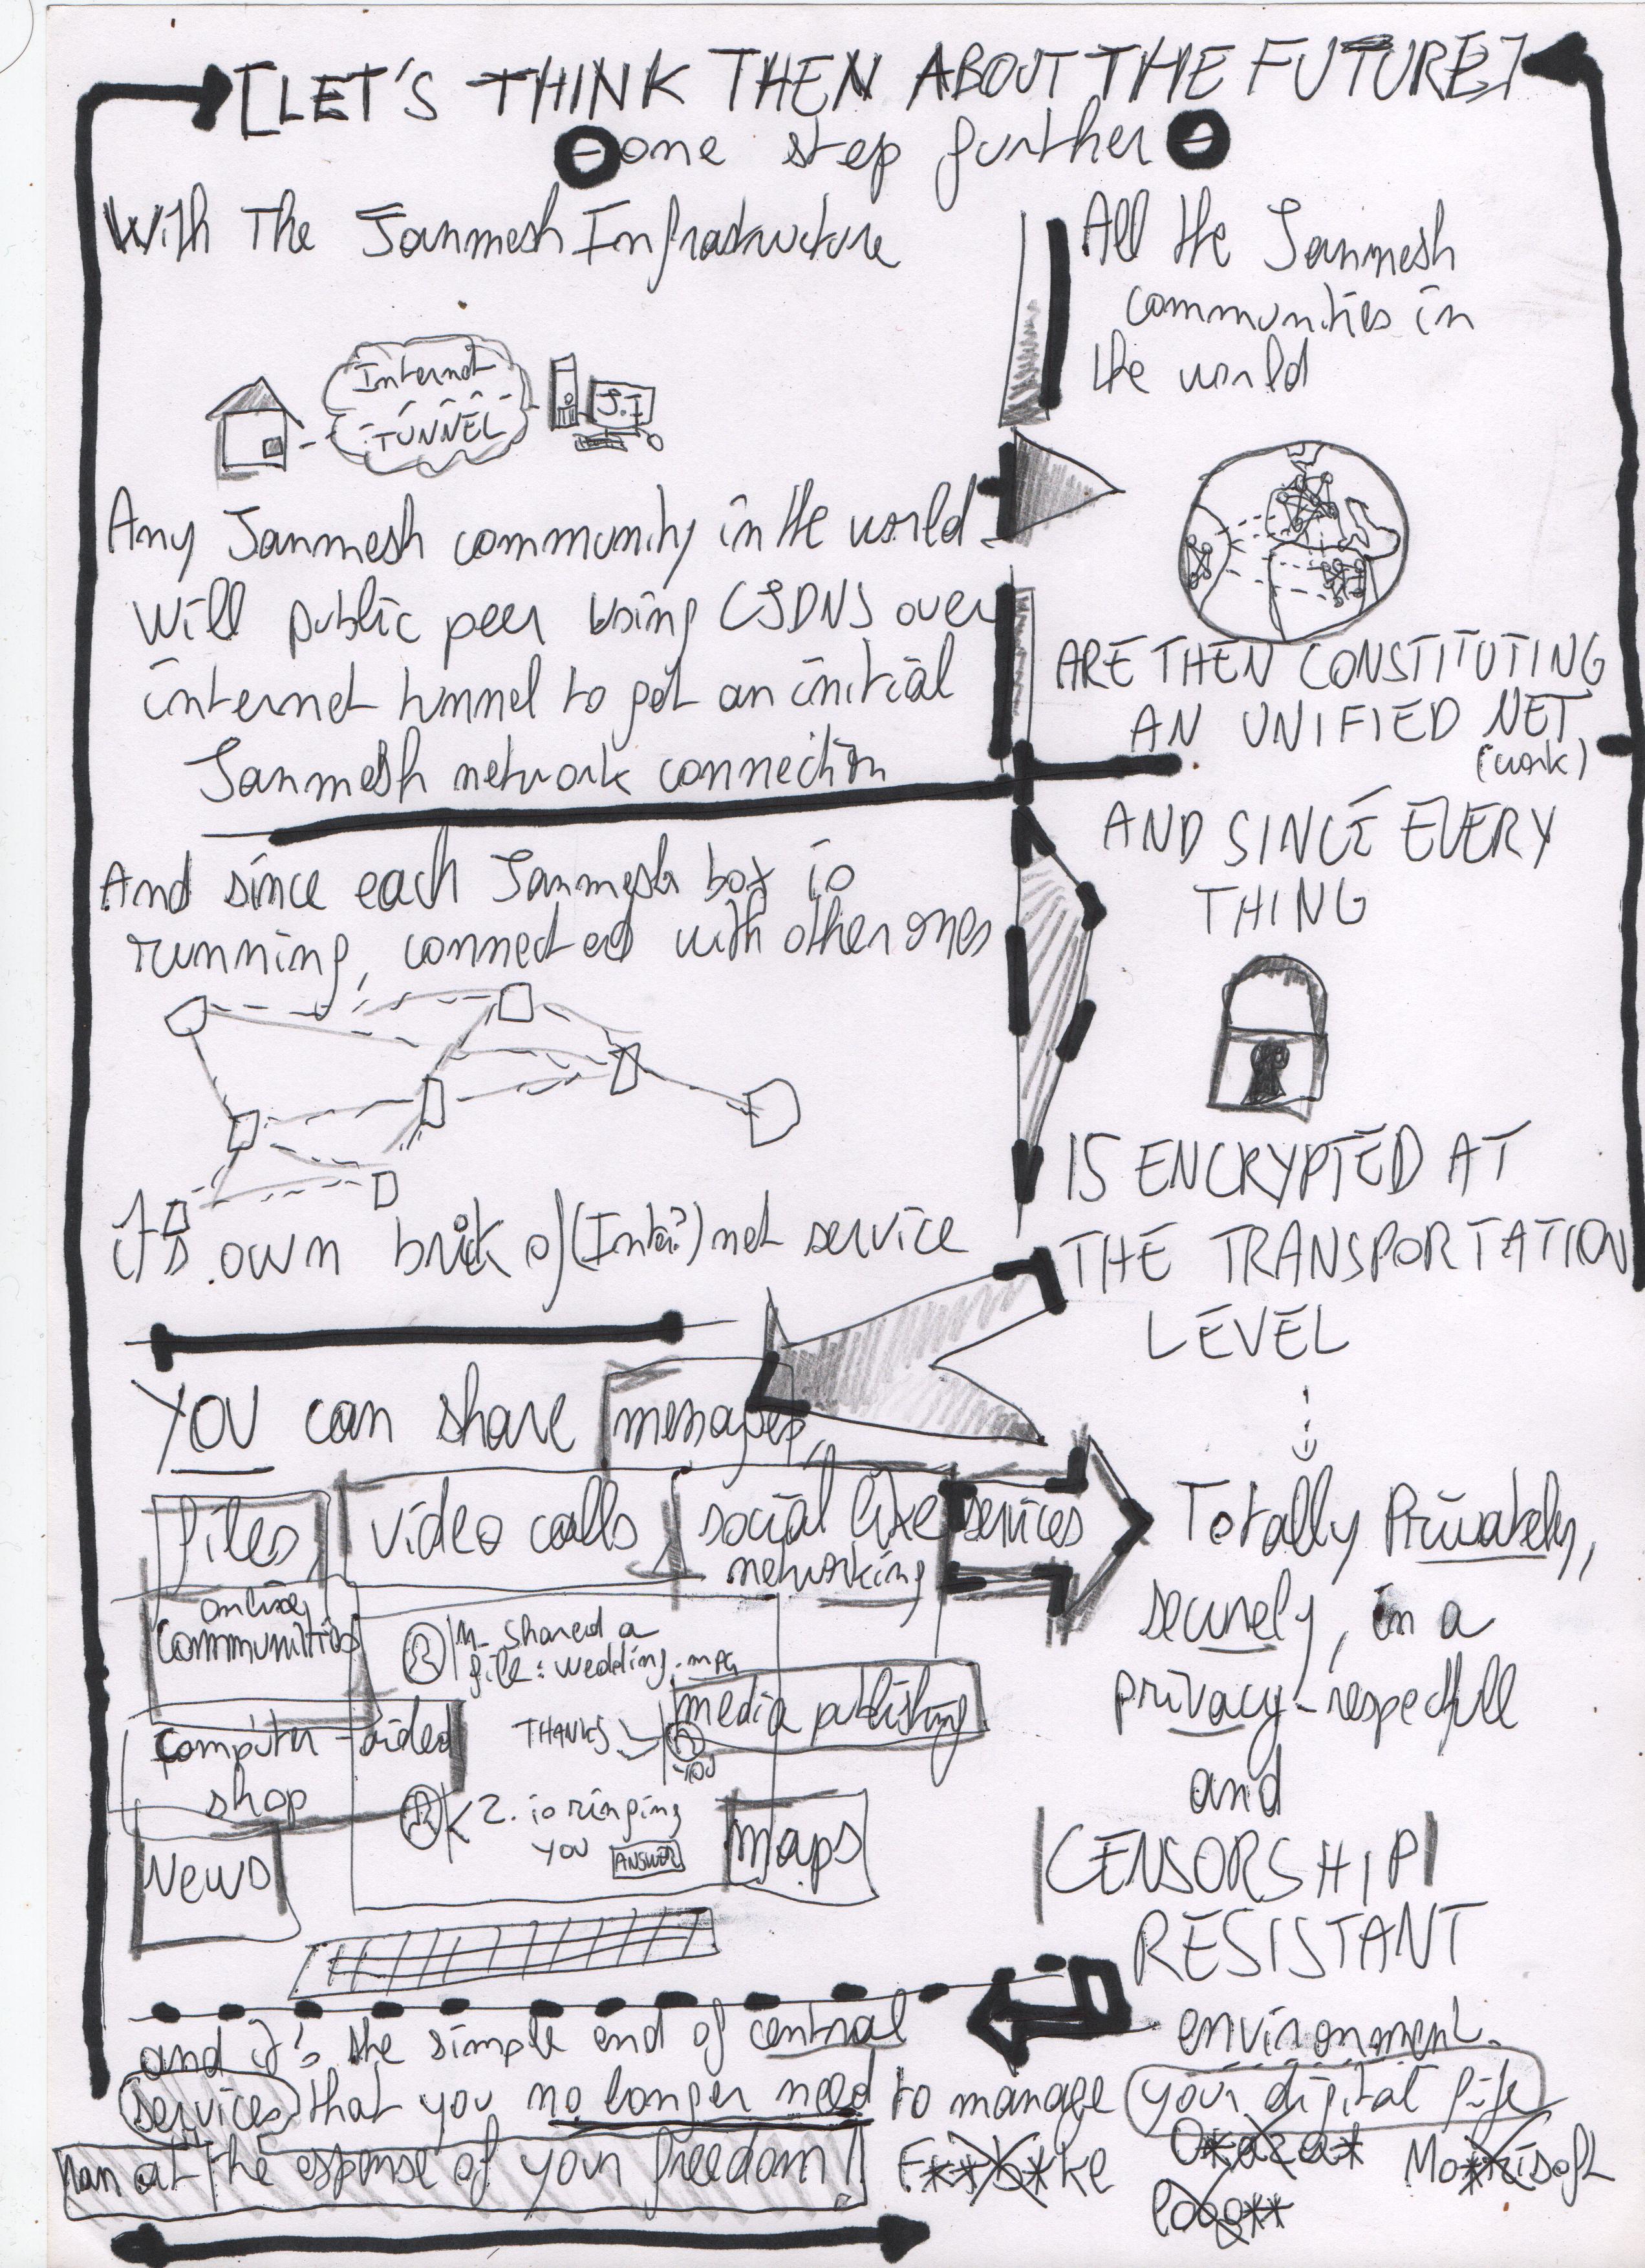 [LET'S THINK THEN ABOUT THE FUTURE]
one step further
With The Janmesh Infrastructure
Internet
TUNNEL
J.I
Any Janmesh community in the world
Will public peer using CJDNS over
internet tunnel to get an initial
Janmesh network connection
All the Janmesh
communities in
the world
ARE THEN CONSTITUTING
AN UNIFIED NET
(work)
And since each Janmesh box is
running, connected with other ones
it's own brick of (Inter?) net service
AND SINCE EVERY
THING
IS ENCRYPTED AT
THE TRANSPORTATION
LEVEL
YOU can share messages,
files, video calls social like services
networking
online
communities
M. shared a
file: wedding.mpg
media publishing
computer-aided
shop
THANKS
YOU
2. is ringing
YOU ANSWER
maps
News
Totally Privately,
securely, in a
privacy-respectfull
and
CENSORSHIP
RESISTANT
environment.
and it's the simple end of central
services that you no longer need to manage your digital life
at the expense of your freedom!
F**b*ke